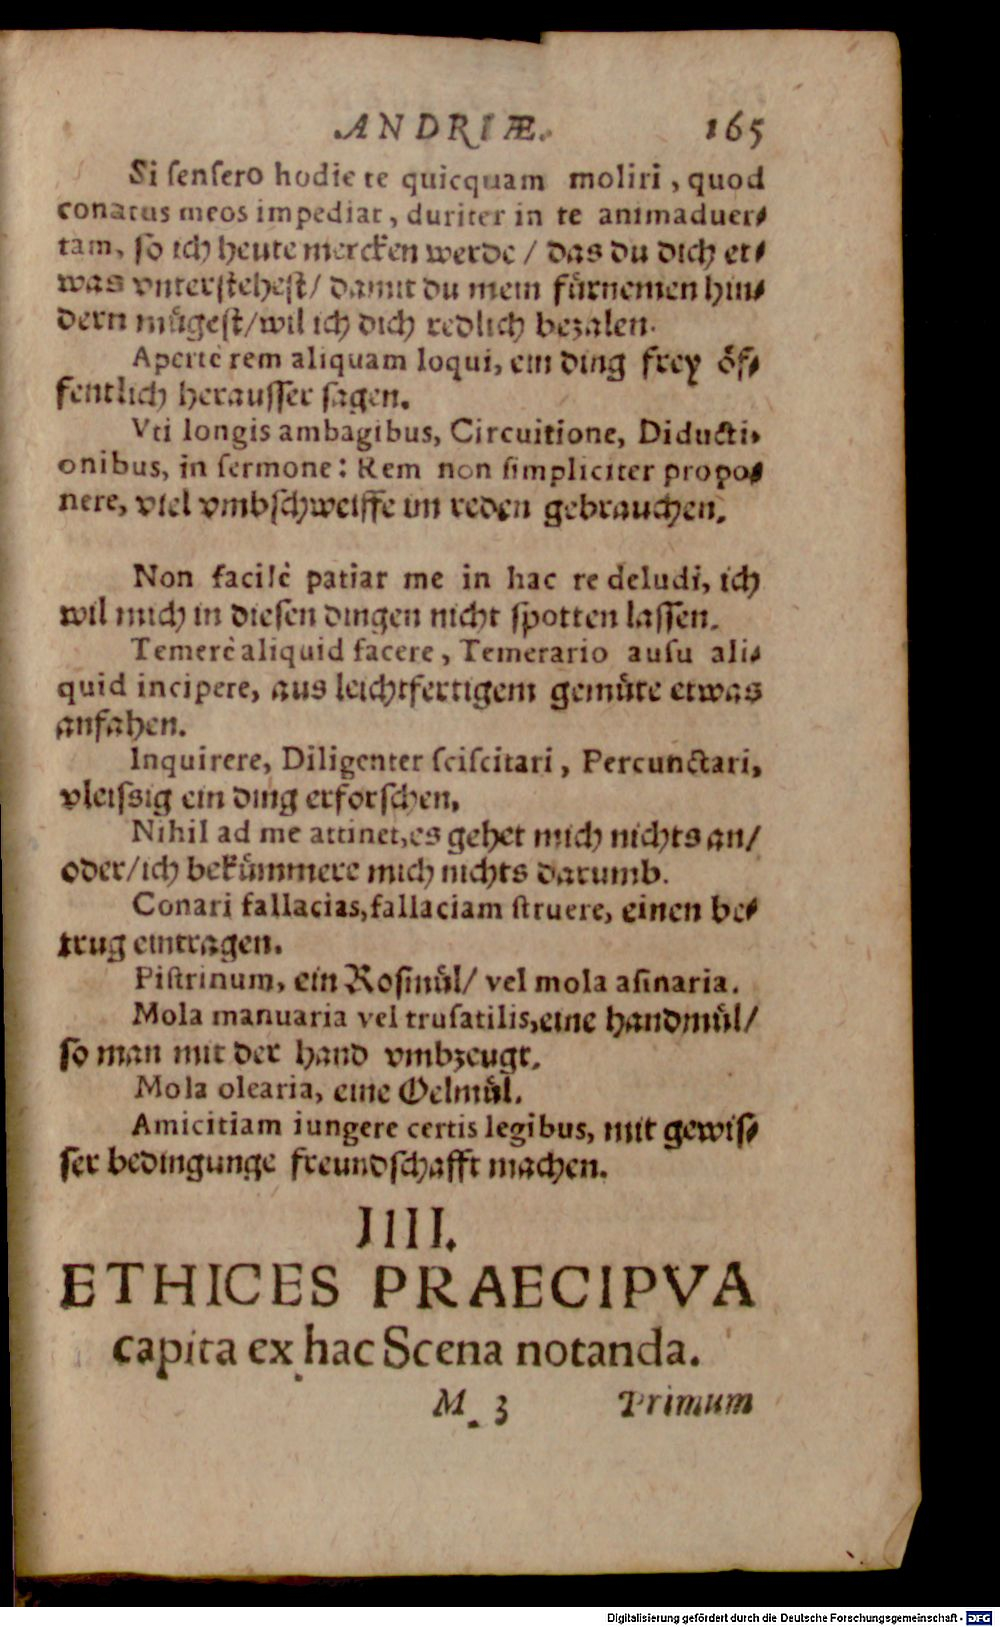 ANDRIÆ. 165
Si ſenſero hodie te quicquam moliri, quod
conatus meos impediat, duriter in te animaduer-
tam, ſo ich heute mercken werde / das du dich et-
was vnterſteheſt / damit du mein fuͤrnemen hin-
dern muͤgeſt / wil ich dich redlich bezalen.
Apertè rem aliquam loqui, ein ding frey oͤf-
fentlich herauſſer ſagen.
Vti longis ambagibus, Circuitione, Diducti-
onibus, in ſermone: Rem non ſimpliciter propo-
nere, viel vmbſchweiffe im reden gebrauchen.
Non facilè patiar me in hac re deludi, ich
wil mich in dieſen dingen nicht ſpotten laſſen.
Temerè aliquid facere, Temerario auſu ali-
quid incipere, aus leichtfertigem gemuͤte etwas
anfahen.
Inquirere, Diligenter ſciſcitari, Percunctari,
vleiſsig ein ding erforſchen.
Nihil ad me attinet, es gehet mich nichts an /
oder / ich bekuͤmmere mich nichts darumb.
Conari fallacias, fallaciam ſtruere, einen be-
trug eintragen.
Piſtrinum, ein Roſmuͤl / vel mola aſinaria.
Mola manuaria vel truſatilis, eine handmuͤl /
ſo man mit der hand vmbzeugt.
Mola olearia, eine Oelmuͤl.
Amicitiam iungere certis legibus, mit gewiſ-
ſer bedingunge freundſchafft machen.
IIII.
ETHICES PRAECIPVA
capita ex hac Scena notanda.
M 3 Primum
Digitalisierung gefördert durch die Deutsche Forschungsgemeinschaft - DFG